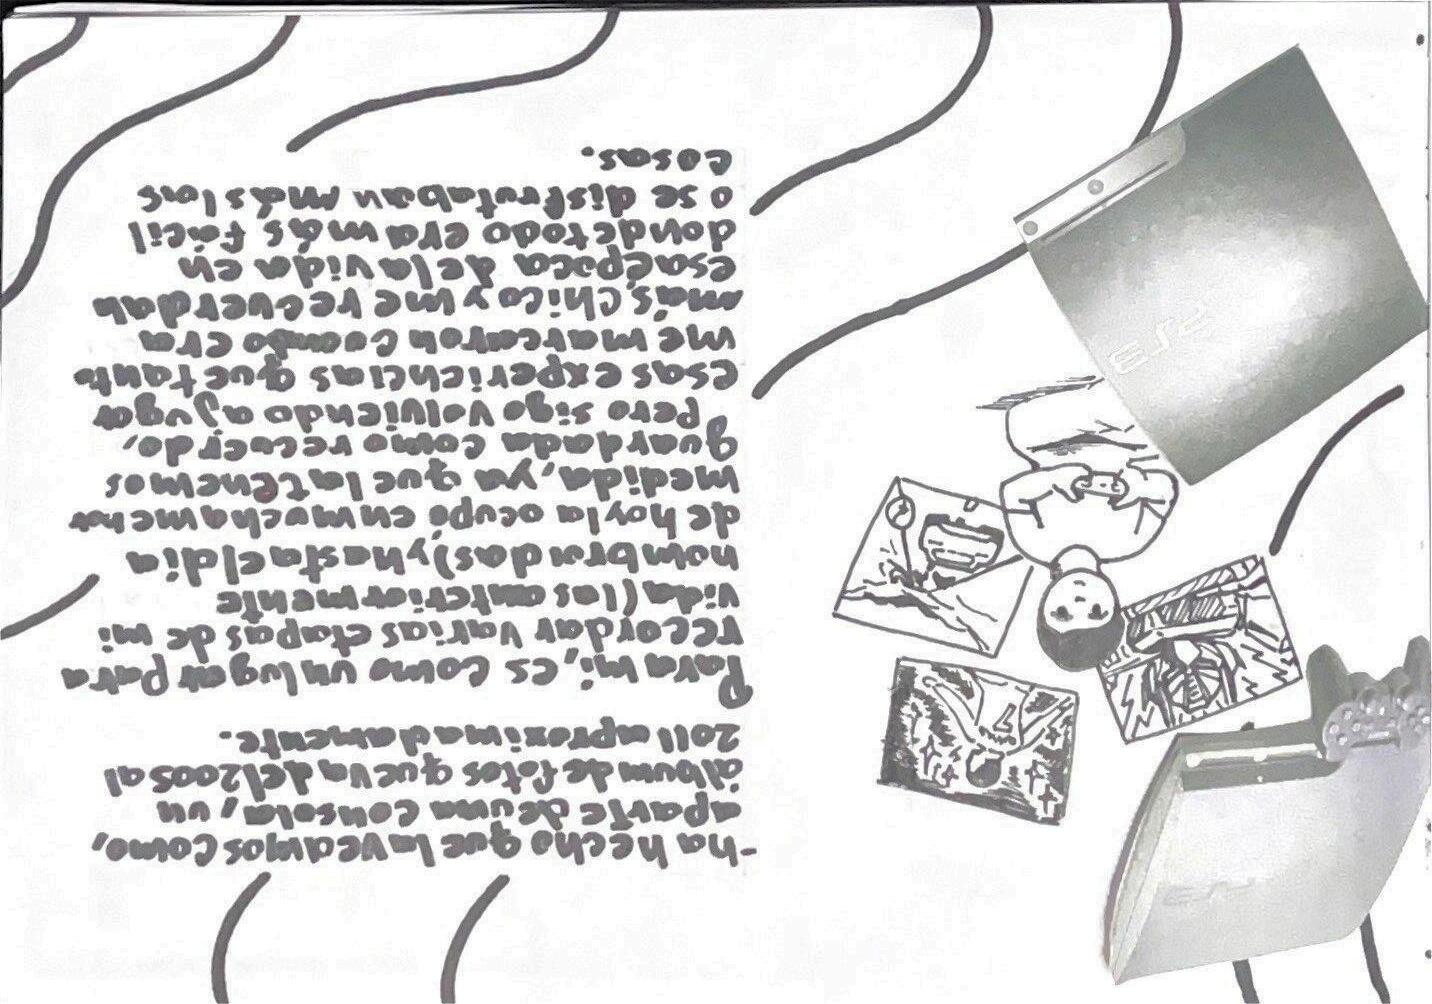 -ha hecho que la veamos como,
aparte de una consola, un
álbum de fotos que va del 2005 al
2011 aproximadamente.
Para mi, es como un lugar para
recordar varias etapas de mi
vida (las anteriormente
nombradas) y hasta el día
de hoy la ocupo en mucha menor
medida, ya que la tenemos
guardada como recuerdo,
pero sigo volviendo a jugar
esas experiencias que tanto
me marcaron cuando era
más chico y me recuerdan
esa época de la vida en
donde todo era más fácil
o se disfrutaban más las
cosas.
PS3
PS3